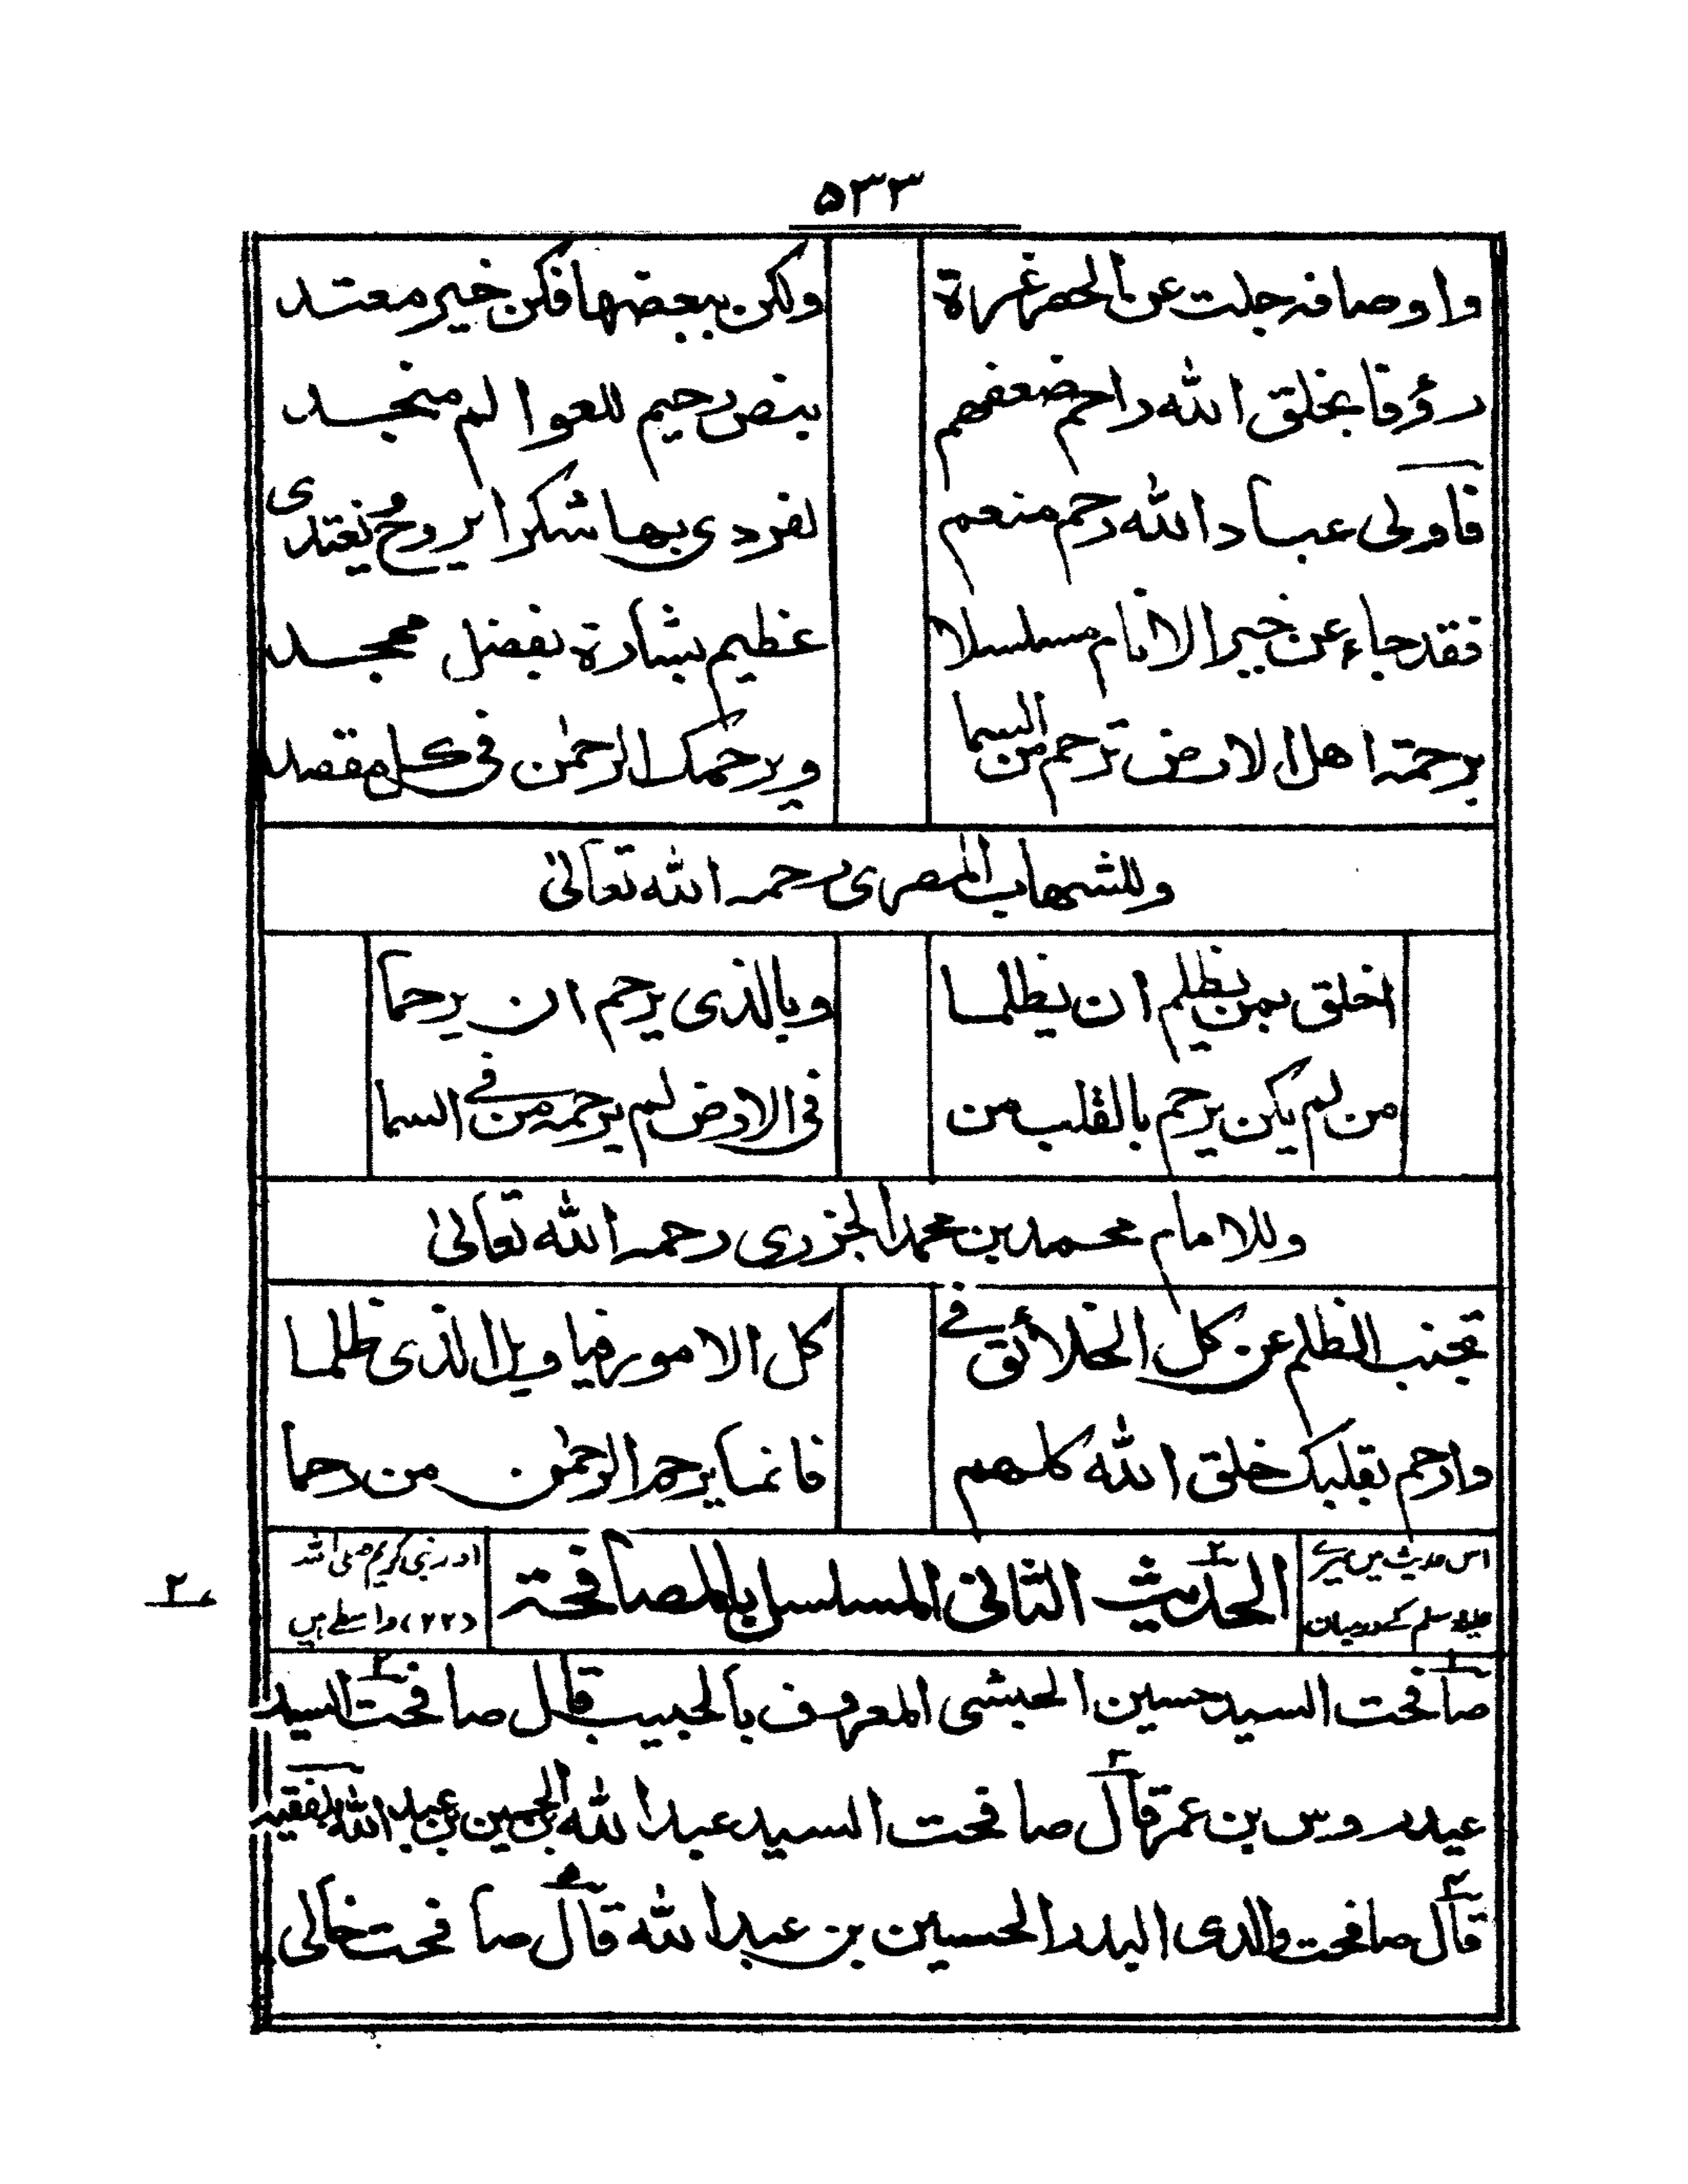 ۵۳۳
واوصافه جلت عن الحصر غرة ولكن ببعضها فكن خير معتد
رؤفا بخلق الله راحم ضعفهم بنص رحيم للعوالم منجد
فاولى عباد الله رحم منعم لفردی بها شكرا يروح نغتدی
فقد جاء عن خير الانام مسلسلا عظيم بشارة بفضل ممجد
برحمة اهل الارض ترحم من السما ويرحمك الرحمٰن فی كل مقصد
وللشهاب المصری رحمه الله تعالیٰ
اخلق بمن يظلم ان يظلما وبالذی يرحم ان يرحما
من لم يكن يرحم بالقلب من فی الارض لم يرحمه من فی السما
وللامام محمد بن محمد الجزری رحمه الله تعالیٰ
تجنب الظلم عن كل الخلائق فی كل الامور فيا ويل الذی ظلما
وارحم بقلبك خلق الله كلهم فانما يرحم الرحمٰن من رحما
اس حدیث میں میرے الحديث الثانی المسلسل بالمصافحة اور نبی کریم صلی اللہ
علیہ وسلم کے درمیان (۲۲) واسطے ہیں
۲
صافحت السيد حسين الحبشی المعروف بالحبيب قال صافحت السيد
عيدروس بن عمر قال صافحت السيد عبدالله بن الحسين بن عبدالله بلفقيه
قال صافحت والدی البدر الحسين بن عبدالله قال صافحت خالی